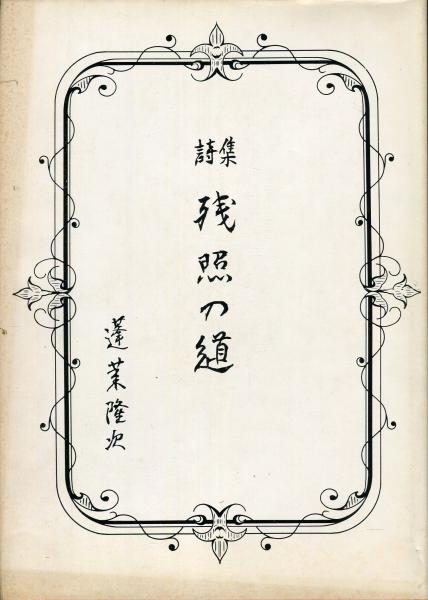 詩集
残照の道
蓬莱隆次